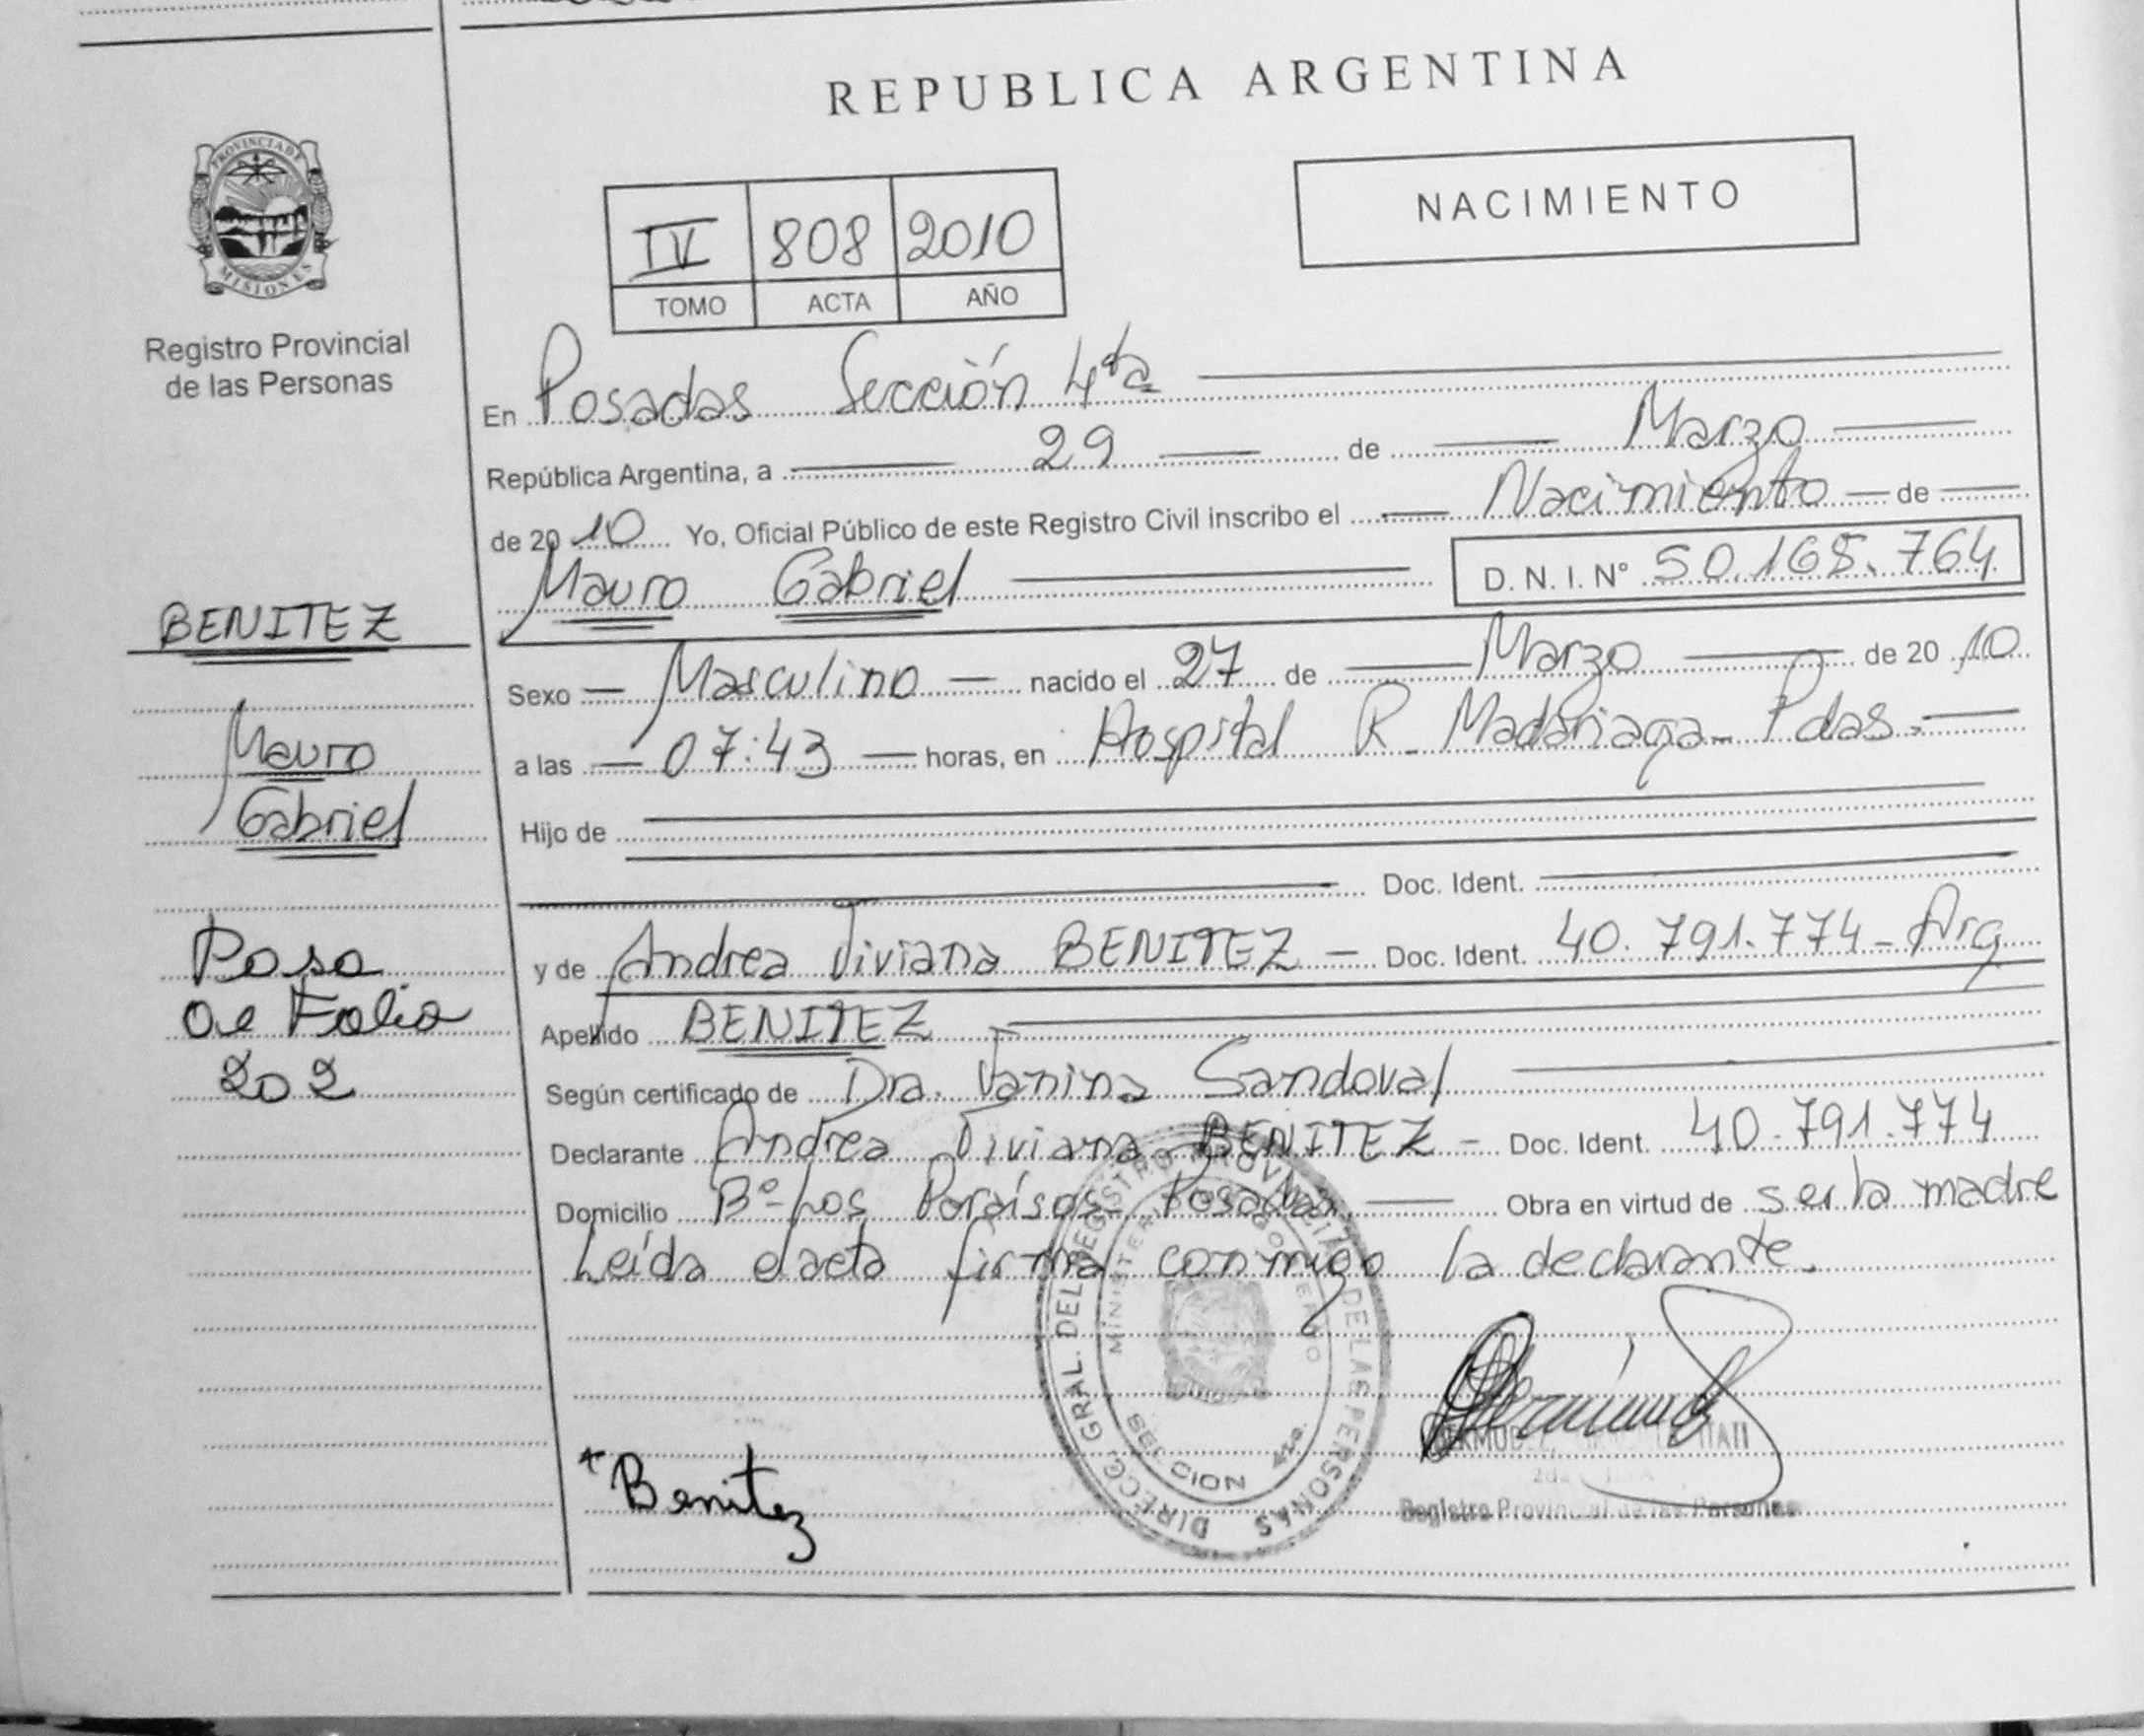 REPUBLICA ARGENTINA
PROVINCIA DE
MISIONES
Registro Provincial
de las Personas
NACIMIENTO
IV 808 2010
TOMO ACTA AÑO
En Posadas Sección 4ta
República Argentina, a 29 de Marzo
de 2010 Yo, Oficial Público de este Registro Civil inscribo el Nacimiento de
Mauro Gabriel D. N. I. N° 50.165.764
Sexo Masculino nacido el 27 de Marzo de 2010
a las 07:43 horas, en Hospital R. Madariaga - Pdas.
Hijo de
Doc. Ident.
y de Andrea Viviana BENITEZ - Doc. Ident. 40.791.774 - Arg
Apellido BENITEZ
Según certificado de Dra. Vanina Sandoval
Declarante Andrea Viviana BENITEZ - Doc. Ident. 40.791.774
Domicilio B° Los Paraísos - Posadas. Obra en virtud de ser la madre
Leída el acta firma conmigo la declarante.
BENITEZ
Mauro
Gabriel
Pasa
al Folio
202
DIRECC. GRAL. DEL REGISTRO PROVINCIAL DE LAS PERSONAS
MINISTERIO DE GOBIERNO
SECCION 4ta.
Benitez
Registro Provincial de las Personas